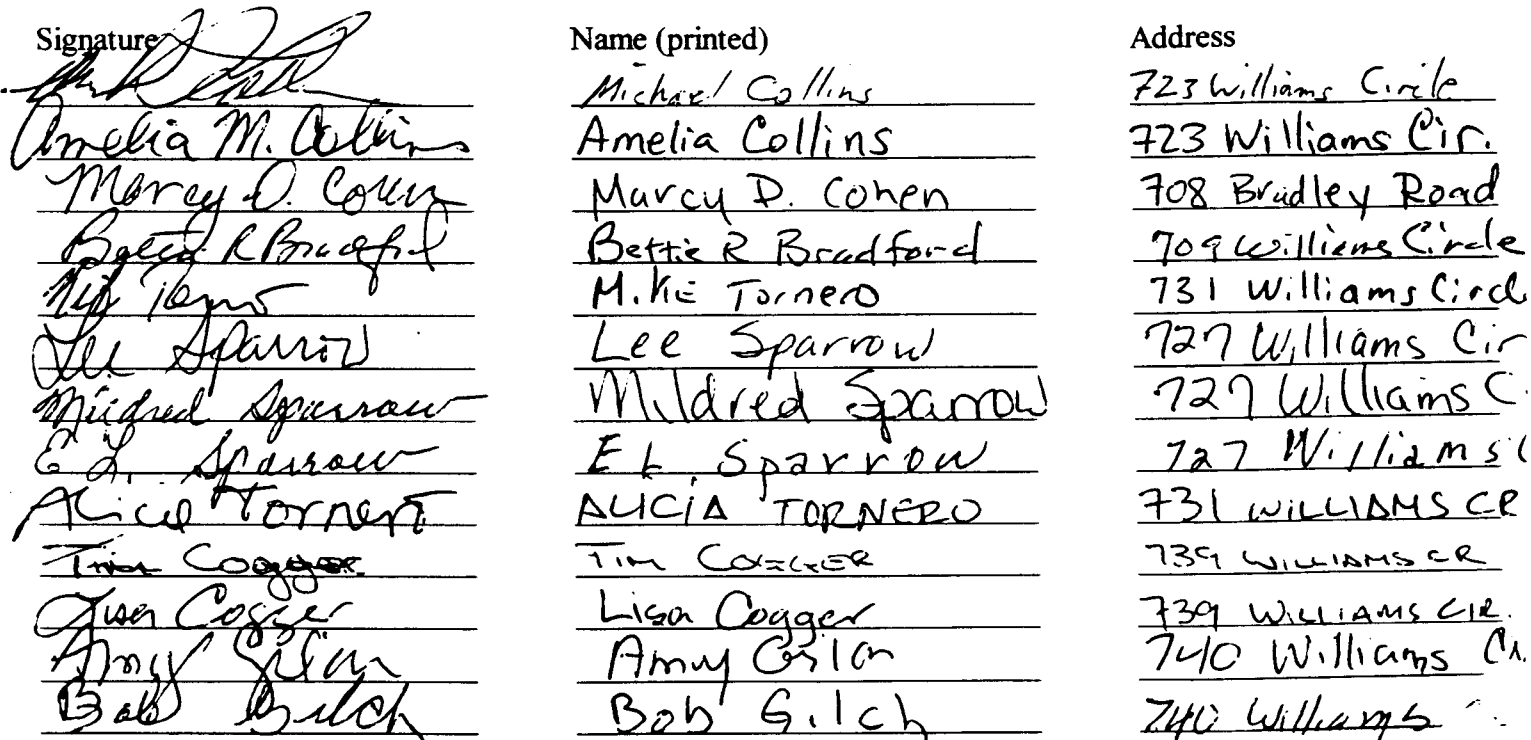 Signature Name (printed) Address
Michael Collins 723 Williams Circle
Amelia M. Collins Amelia Collins 723 Williams Cir.
Marcy D. Cohen Marcy D. Cohen 708 Bradley Road
Bettie R Bradford Bettie R Bradford 709 Williams Circle
Mike Tornero 731 Williams Circl
Lee Sparrow Lee Sparrow 727 Williams Cir
Mildred Sparrow Mildred Sparrow 727 Williams C
E L. Sparrow E L. Sparrow 727 Williams C
Alicia Tornero ALICIA TORNERO 731 WILLIAMS CR
Tim Cogger TIM COGGER 739 WILLIAMS CR
Lisa Cogger Lisa Cogger 739 WILLIAMS CIR.
Amy Gilch Amy 740 Williams Cr.
Bob Gilch Bob Gilch 740 Williams